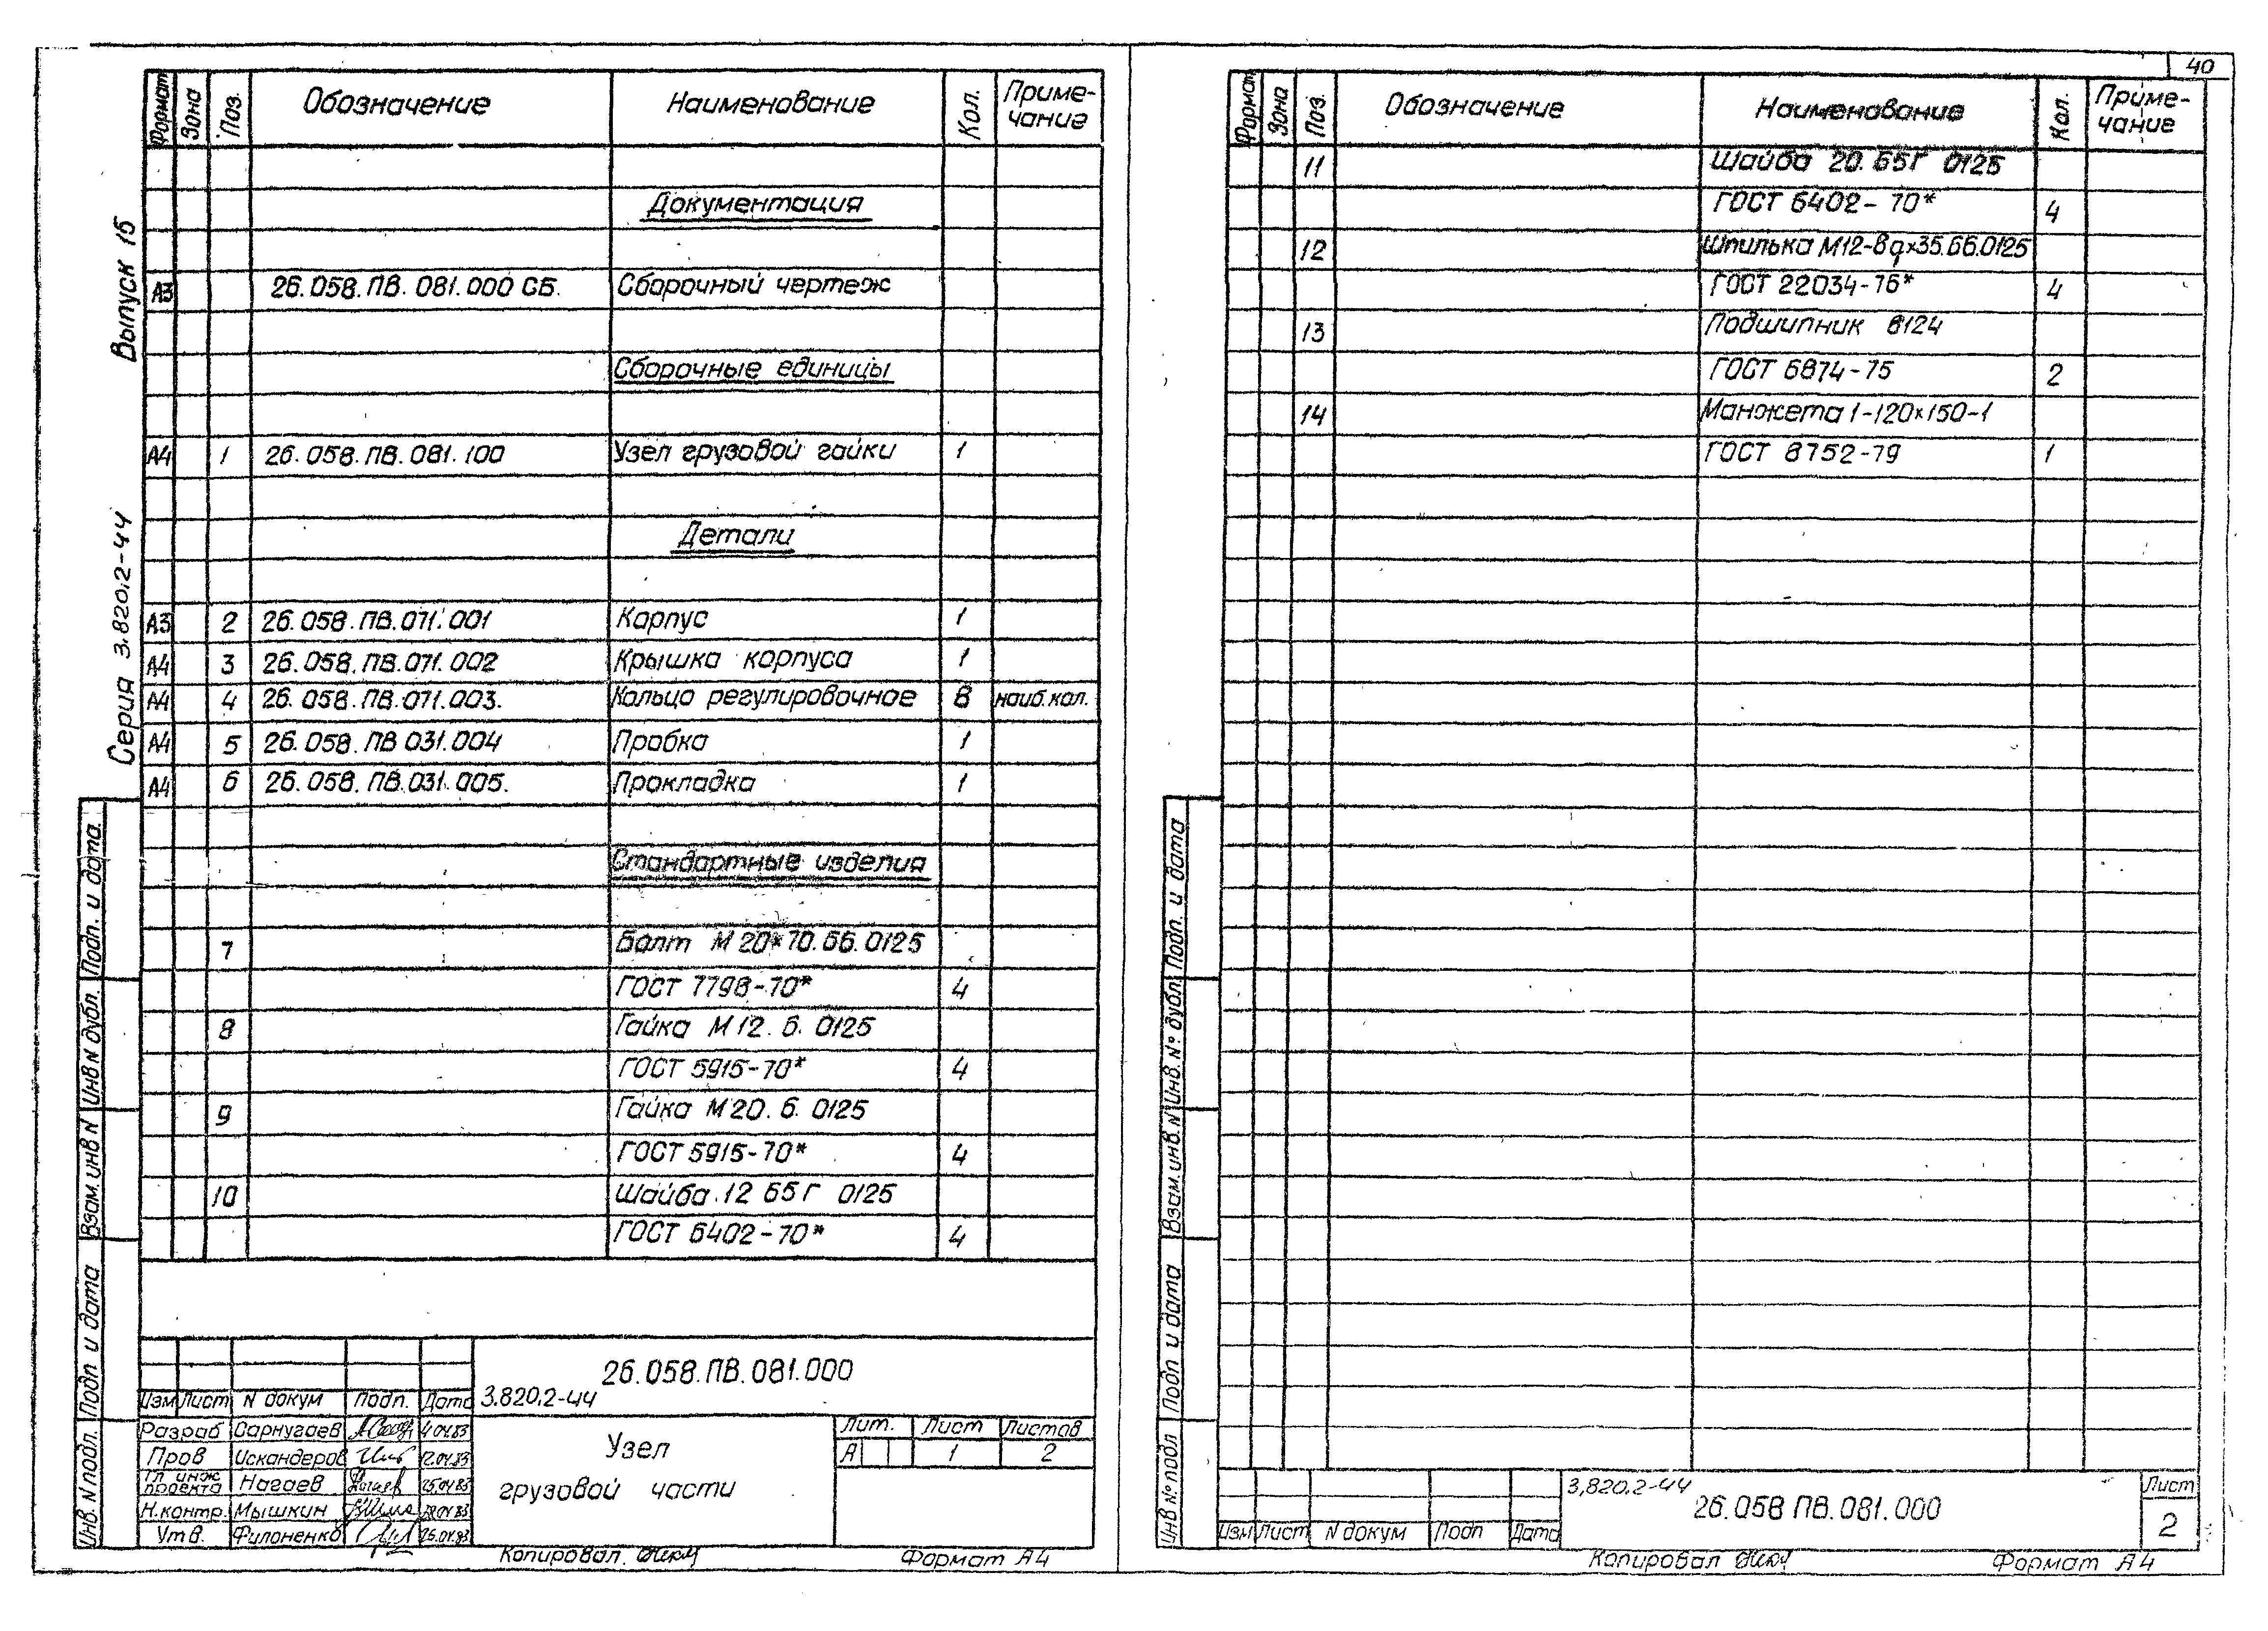 40
Выпуск 15
Серия 3.820.2-44
Формат Зона Поз. Обозначение Наименование Кол. Приме-
чание
Документация
А3 26.058.ПВ.081.000 СБ. Сборочный чертеж
Сборочные единицы
А4 1 26.058.ПВ.081.100 Узел грузовой гайки 1
Детали
А3 2 26.058.ПВ.071.001 Корпус 1
А4 3 26.058.ПВ.071.002 Крышка корпуса 1
А4 4 26.058.ПВ.071.003. Кольцо регулировочное 8 наиб.кол.
А4 5 26.058.ПВ 031.004 Пробка 1
А4 6 26.058.ПВ.031.005. Прокладка 1
Стандартные изделия
7 Болт М 20×70.66.0125
ГОСТ 7798-70* 4
8 Гайка М 12.6.0125
ГОСТ 5915-70* 4
9 Гайка М 20.6.0125
ГОСТ 5915-70* 4
10 Шайба.12 65Г 0125
ГОСТ 6402-70* 4
Подп. и дата.
Инв N дубл.
Взам.инв N
Подп и дата
Инв. N подл.
26.058.ПВ.081.000
3.820.2-44
Изм Лист N докум Подп. Дата
Разраб Сарнугаев
Пров Искандеров 12.04.83
Гл инж
проекта Нагаев 25.04.83
Н.контр. Мышкин
Утв. Филоненко
Узел
грузовой части
Лит. Лист Листов
А 1 2
Копировал.
Формат А4
Формат Зона Поз. Обозначение Наименование Кол. Приме-
чание
11 Шайба 20.65Г 0125
ГОСТ 6402-70* 4
12 Шпилька М12-8g×35.66.0125
ГОСТ 22034-76* 4
13 Подшипник 8124
ГОСТ 6874-75 2
14 Манжета 1-120×150-1
ГОСТ 8752-79 1
Подп. и дата
Инв. №. дубл.
Взам.инв.N
Подп и дата
Инв № подл
3.820.2-44
26.058 ПВ.081.000
Изм Лист N докум Подп Дата
Лист
2
Копировал
Формат А4